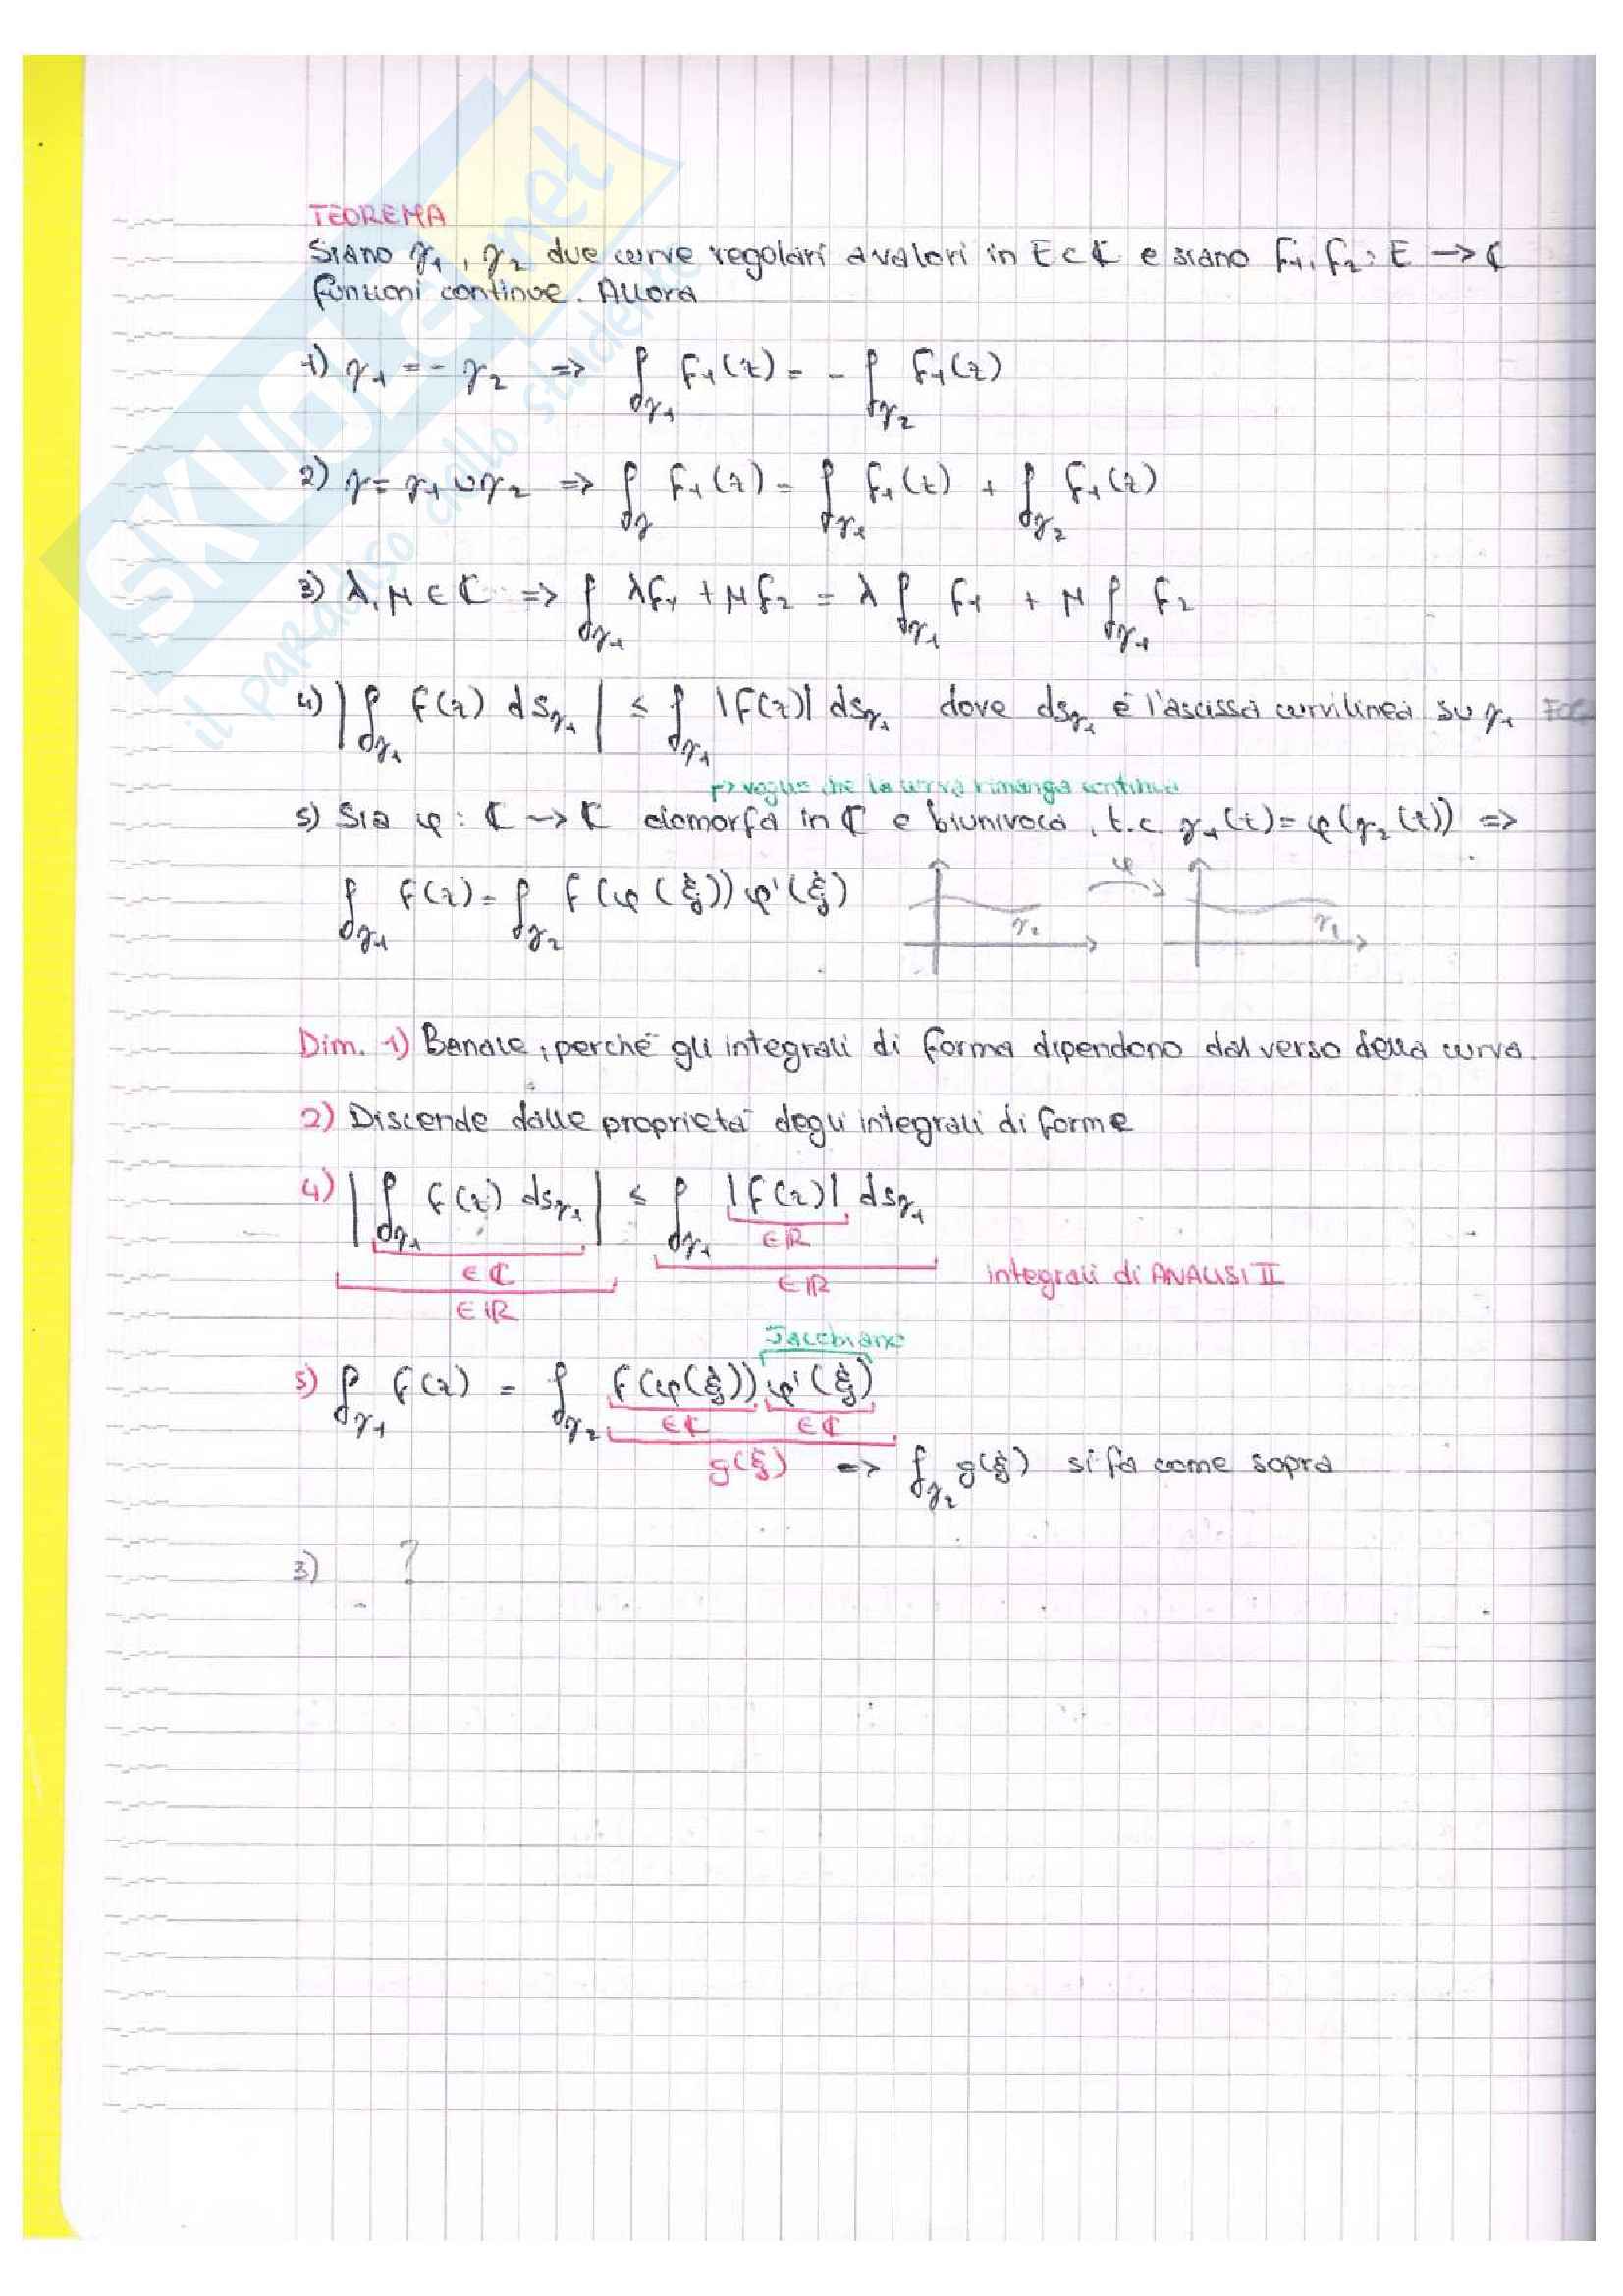 TEOREMA
Siano γ₁, γ₂ due curve regolari a valori in E ⊂ ℂ e siano f₁, f₂: E → ℂ
funzioni continue. Allora
1) γ₁ = - γ₂ => ∫γ₁ f₁(z) = - ∫γ₂ f₁(z)
2) γ = γ₁ ∪ γ₂ => ∫γ f₁(z) = ∫γ₁ f₁(z) + ∫γ₂ f₁(z)
3) λ, μ ∈ ℂ => ∫γ₁ λf₁ + μf₂ = λ ∫γ₁ f₁ + μ ∫γ₁ f₂
4) |∫γ₁ f(z) dsγ₁| ≤ ∫γ₁ |f(z)| dsγ₁ dove dsγ₁ è l'ascissa curvilinea su γ₁
↱> voglio che la curva rimanga continua
5) Sia φ: ℂ → ℂ olomorfa in ℂ e biunivoca, t.c. γ₁(t) = φ(γ₂(t)) =>
∫γ₁ f(z) = ∫γ₂ f(φ(ξ)) φ'(ξ)
γ₂ φ γ₁
Dim. 1) Banale, perché gli integrali di forma dipendono dal verso della curva.
2) Discende dalle proprietà degli integrali di forme
4) |∫γ₁ f(z) dsγ₁| ≤ ∫γ₁ |f(z)| dsγ₁
∈ℝ
∈ℂ ∈ℝ integrali di ANALISI II
∈ℝ
Jacobiano
5) ∫γ₁ f(z) = ∫γ₂ f(φ(ξ)) φ'(ξ)
∈ℂ ∈ℂ
g(ξ) => ∫γ₂ g(ξ) si fa come sopra
3) ?
SKUOLA.net
il paradiso dello studente